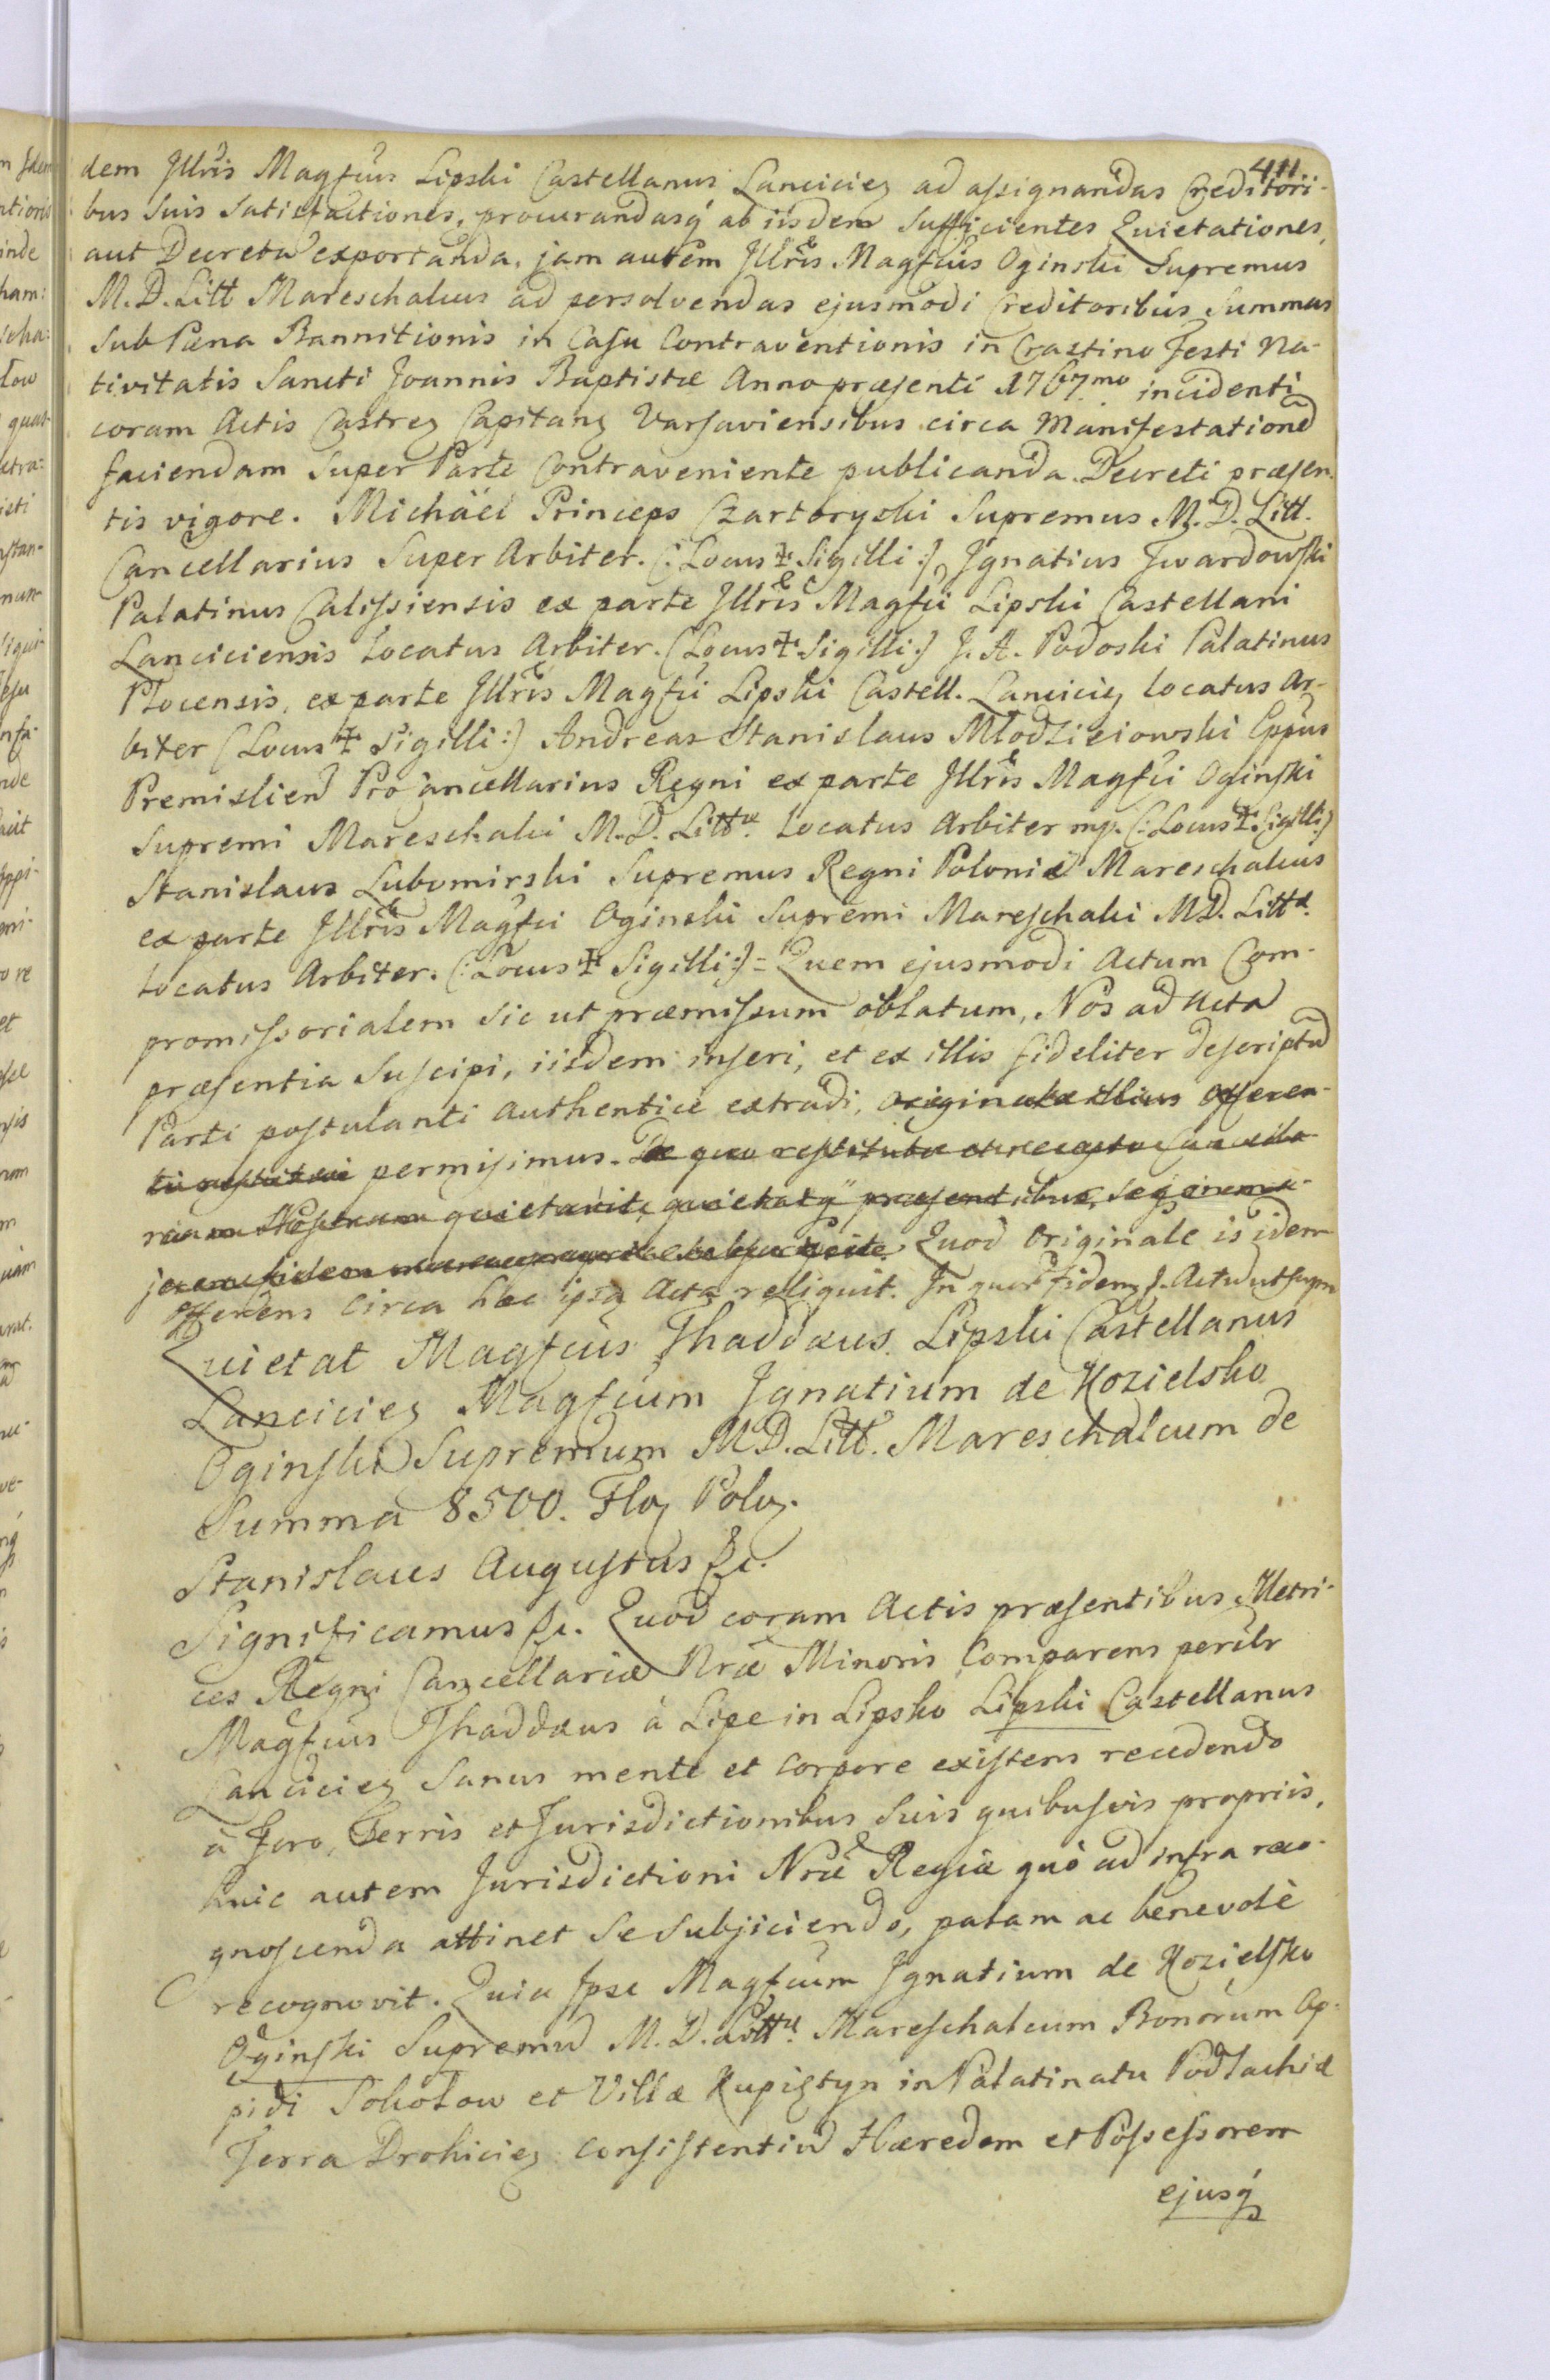 411.
dem Jllris Magfcus Lipski Castellanus Lanciciez ad assignandas Creditori-
bus suis satisfactiones, procurandasq ab iisdem sufficientes Quietationes,
aut Decreta exportanda. jam autem Jllris Magfcus Oginski Supremus
M. D. Litt Mareschalcus ad persolvendas ejusmodi Creditoribus Summas
sub Pæna Bannitionis in Casu Contraventionis in Crastino Festi Na-
tivitatis Sancti Joannis Baptistæ Anno præsenti 1767mo incidenti
coram Actis Castrez Capitanz Varsaviensibus circa Manifestatione
faciendam super Parte Contraveniente publicanda. Decreti præsen-
tis vigore. Michäel Princeps Czartoryski Supremus M. D. Litt.
Cancellarius Super Arbiter. (: Locus ‡ Sigilli :) Jgnatius Twardowski
Palatinus Calissiensis ex parte Jllris Magfci Lipski Castellani
Lanciciensis Locatus Arbiter. (Locus ‡ Sigilli :) J. A. Podoski Palatinus
Plocensis, ex parte Jllris Magfci Lipski Castell. Lanciciez locatus Ar-
biter (Locus ‡ Sigilli :) Andreas Stanislaus Młodzieiowski Eppus
Premislien Pro Cancellarius Regni ex parte Jllris Magfci Oginski
Supremi Mareschalci M. D. Littæ. Locatus Arbiter mp. (: Locus ‡ Sigilli :)
Stanislaus Lubomirski Supremus Regni Poloniæ Mareschalcus
ex parte Jllris Magfci Oginski Supremi Mareschalci M D. Littæ.
Locatus Arbiter. (: Locus ‡ Sigilli :) = Quem ejusmodi Actum Com-
promissorialem sic ut præmissum oblatum, Nos ad Acta
præsentia suscipi, iisdem inseri, et ex illis fideliter descriptu
Parti postulanti authentice extradi, originale illius offeren-
ti restitui permisimus. De quo restituto et recepto Cancella-
riam Nostram quietavit, quietatq præsentibus,
Quod Originale is idem
offerens circa hæc ipsa Acta reliquit. In quor fidem J. Actu ut supra
Quietat Magfcus Thaddæus Lipski Castellanus
Lanciciez Magfcum Jgnatium de Kozielsko
Oginski Supremum M D. Litt. Mareschalcum de
Summa 8500. Flo Polo.
Stanislaus Augustus &c.
Significamus &c. Quod coram Actis præsentibus Metri-
ces Regni Cancellariæ Nræ Minoris Comparens perillr
Magfcus Thaddæus à Lipe in Lipsko Lipski Castellanus
Lanciciez sanus mente et corpore existens recedendo
à Foro, Terris et Jurisdictionibus suis quibusvis propriis,
huic autem Jurisdictioni Nræ Regiæ quò ad infra reco-
gnoscenda attinet se subjiciendo, palam ac benevolè
recognovit. Quia Jpse Magfcum Jgnatium de Kozielsko
Oginski Supremu M. D. Littæ. Mareschalcum Bonorum Op-
pidi Sokołow et Villæ Kupięтyn in Palatinatu Podlachiæ
Terra Drohiciez consistentiu Hæredem et Possessorem
ejusq